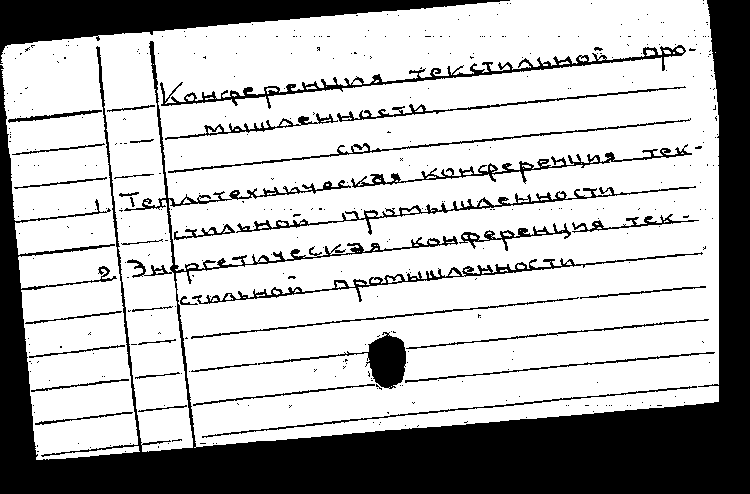 Конференция текстильной про-
мышленности.
см.
1. Теплотехническая конференция тек-
стильной промышленности.
2. Энергетическая конференция тек-
стильной промышленности.